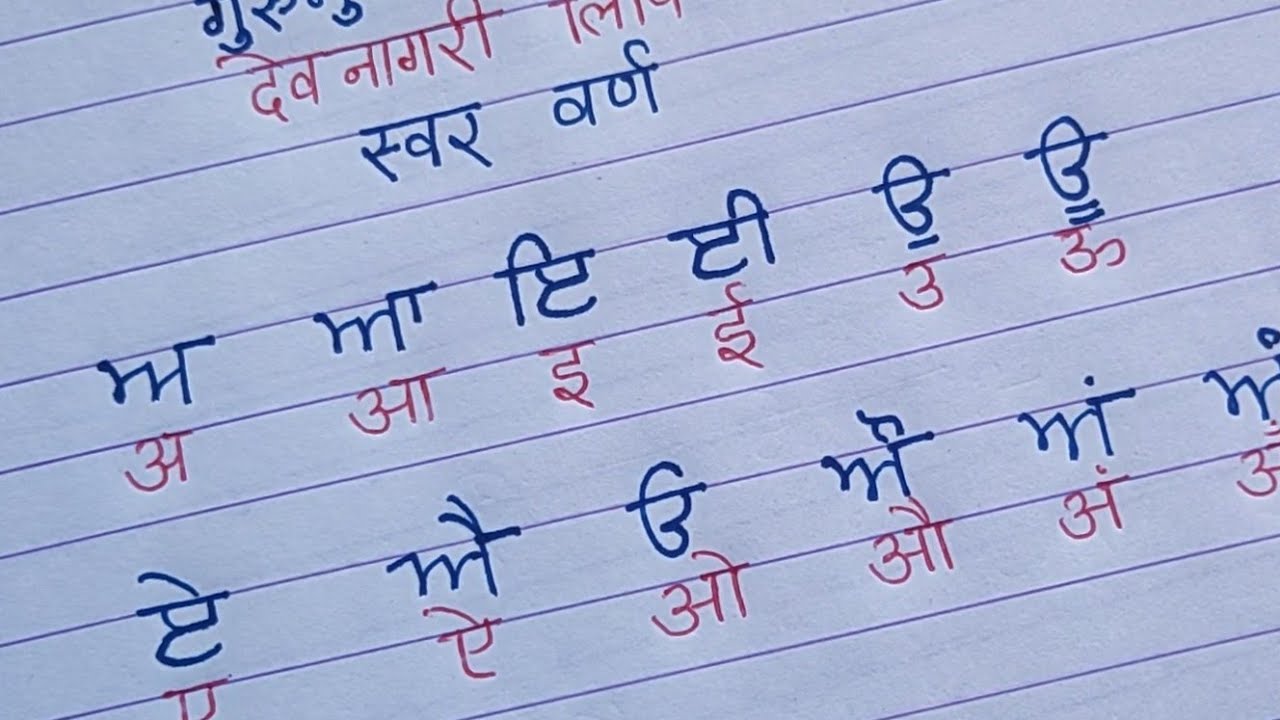 देवनागरी लिपि
स्वर वर्ण
ਅ ਆ ਇ ਈ ਉ ਊ
अ आ इ ई उ ऊ
ਏ ਐ ਓ ਔ ਅਂ
ए ऐ ओ औ अं